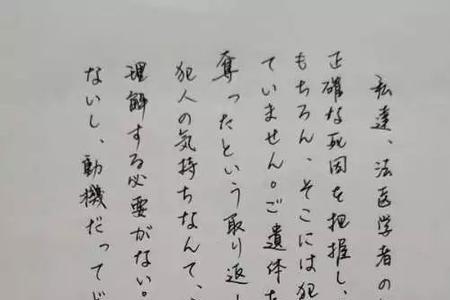 私達、法医学者の
正確な死因を把握し、
もちろん、そこには犯
ていません。ご遺体を
奪ったという取り返し
犯人の気持ちなんて、
理解する必要がない。
ないし、動機だってど